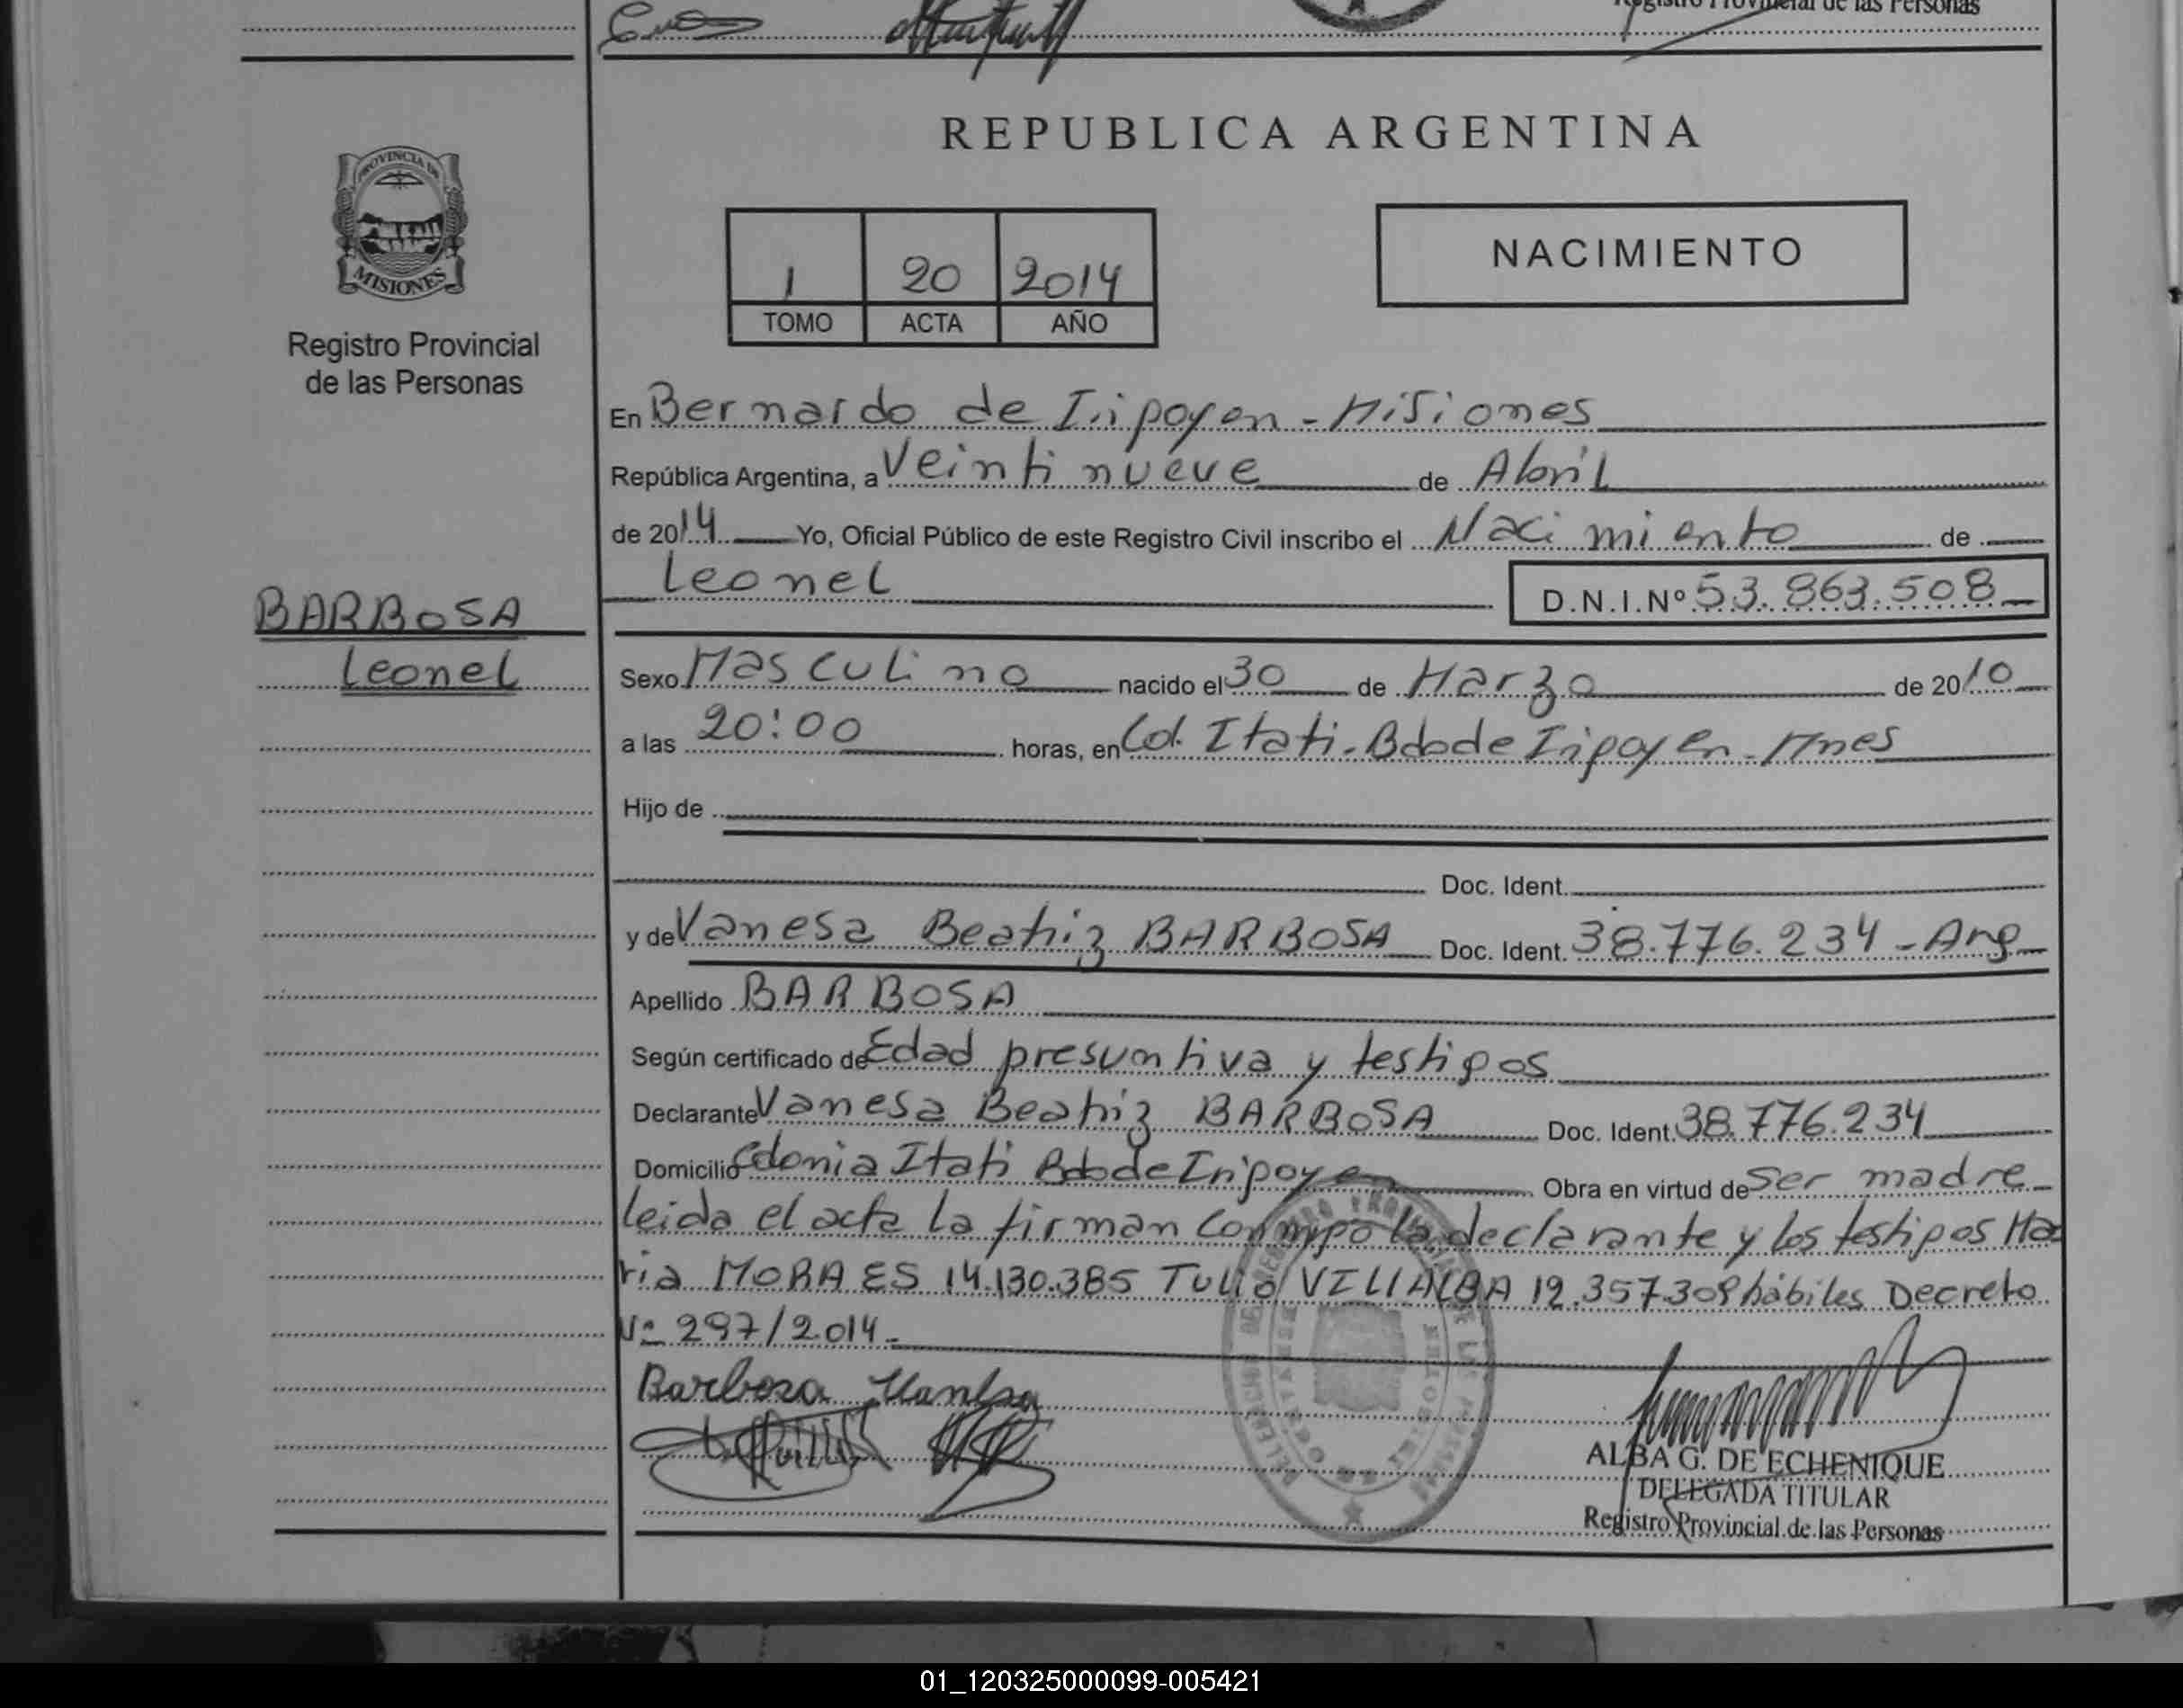 Registro Provincial de las Personas
REPUBLICA ARGENTINA
PROVINCIA DE
MISIONES
Registro Provincial
de las Personas
1 20 2014
TOMO ACTA AÑO
NACIMIENTO
En Bernardo de Irigoyen - Misiones
República Argentina, a Veintinueve de Abril
de 2014 Yo, Oficial Público de este Registro Civil inscribo el Nacimiento de
Leonel D.N.I.Nº 53.863.508
BARBOSA
Leonel
Sexo Masculino nacido el 30 de Marzo de 2010
a las 20:00 horas, en Col. Itati - Bdo de Irigoyen - Mnes
Hijo de
Doc. Ident.
y de Vanesa Beatriz BARBOSA Doc. Ident. 38.776.234 - Arg
Apellido BARBOSA
Según certificado de Edad presuntiva y testigos
Declarante Vanesa Beatriz BARBOSA Doc. Ident. 38.776.234
Domicilio Colonia Itati Bdo de Irigoyen Obra en virtud de ser madre
leida el acta la firman conmigo la declarante y los testigos Ma
ria MORAES 14.130.385 TULIO VILLALBA 12.357.309 hábiles Decreto
Nº 297/2014
Barboza Vanesa
ALBA G. DE ECHENIQUE
DELEGADA TITULAR
Registro Provincial de las Personas
01_120325000099-005421